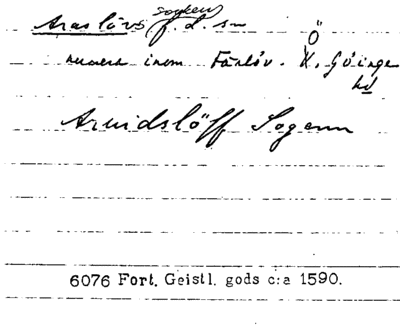 Araslövs socken f. d. sn
numera inom Färlöv. Ö. Göinge
hd
Aruidslöff Sogenn
6076 Fort. Geistl. gods c:a 1590.